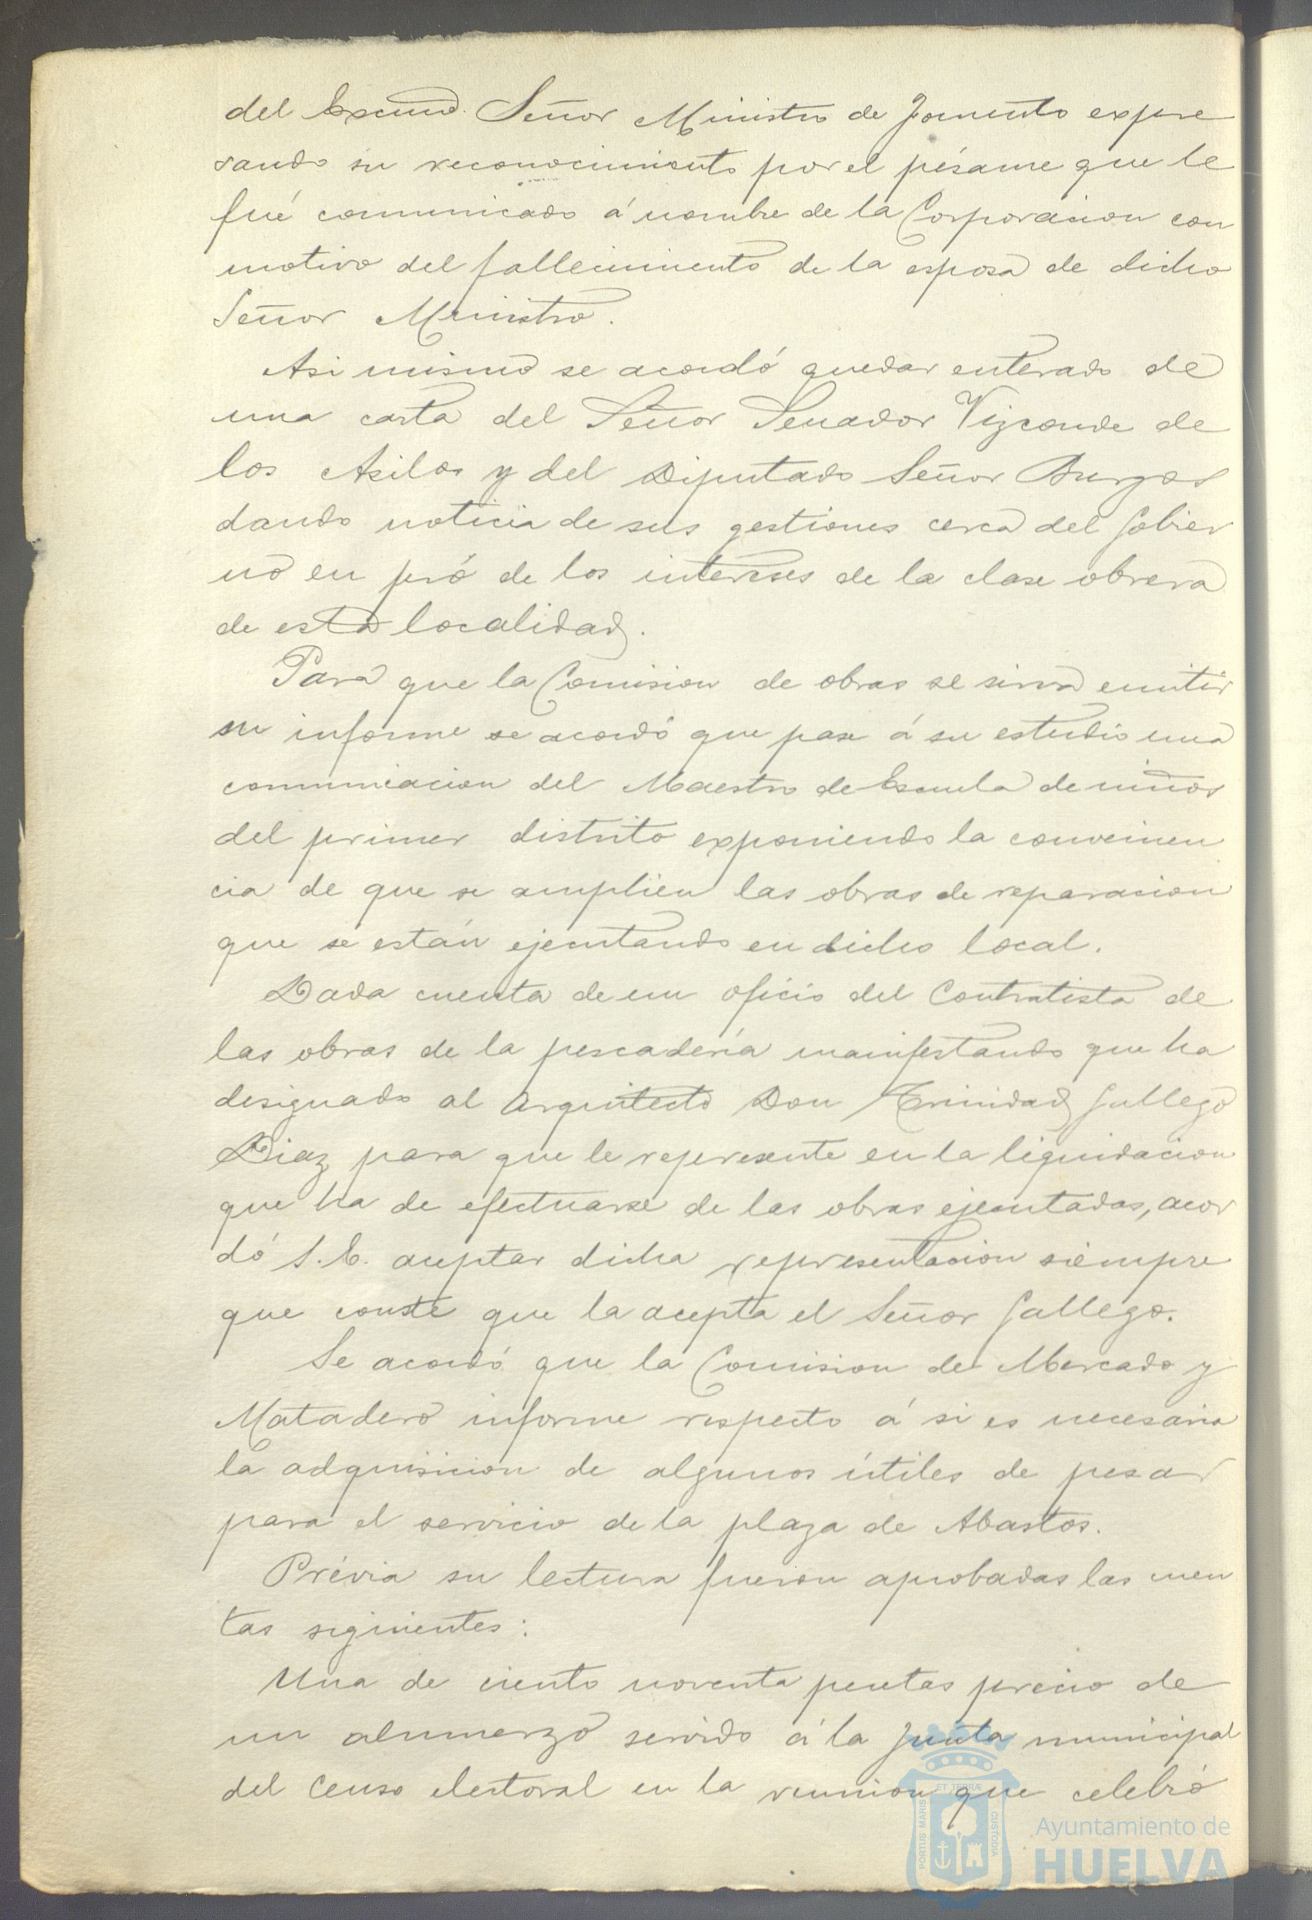 del Excmo. Señor Ministro de Fomento expre
sando su reconocimiento por el pésame que le
fué comunicado á nombre de la Corporacion con
motivo del fallecimiento de la esposa de dicho
Señor Ministro.
Asi mismo se acordó quedar enterado de
una carta del Señor Senador Vizconde de
los Asilos y del Diputado Señor Burgos
dando noticia de sus gestiones cerca del Gobier
no en pró de los intereses de la clase obrera
de esta localidad.
Para que la Comision de obras se sirva emitir
su informe se acordó que pase á su estudio una
comunicacion del Maestro de Escuela de niños
del primer distrito exponiendo la convenien
cia de que se amplien las obras de reparacion
que se están ejecutando en dicho local.
Dada cuenta de un oficio del Contratista de
las obras de la pescadería manifestando que ha
designado al Arquitecto Don Trinidad Gallego
Diaz para que le represente en la liquidacion
que ha de efectuarse de las obras ejecutadas, acor
dó S.E. aceptar dicha representacion siempre
que conste que la acepta el Señor Gallego.
Se acordó que la Comision de Mercado y
Matadero informe respecto á si es necesaria
la adquisicion de algunos útiles de pesar
para el servicio de la plaza de Abastos.
Prévia su lectura fueron aprobadas las cuen
tas siguientes:
Una de ciento noventa pesetas precio de
un almuerzo servido á la Junta municipal
del Censo electoral en la reunion que celebró
PORTUS MARIS ET TERRÆ CUSTODIA
Ayuntamiento de
HUELVA